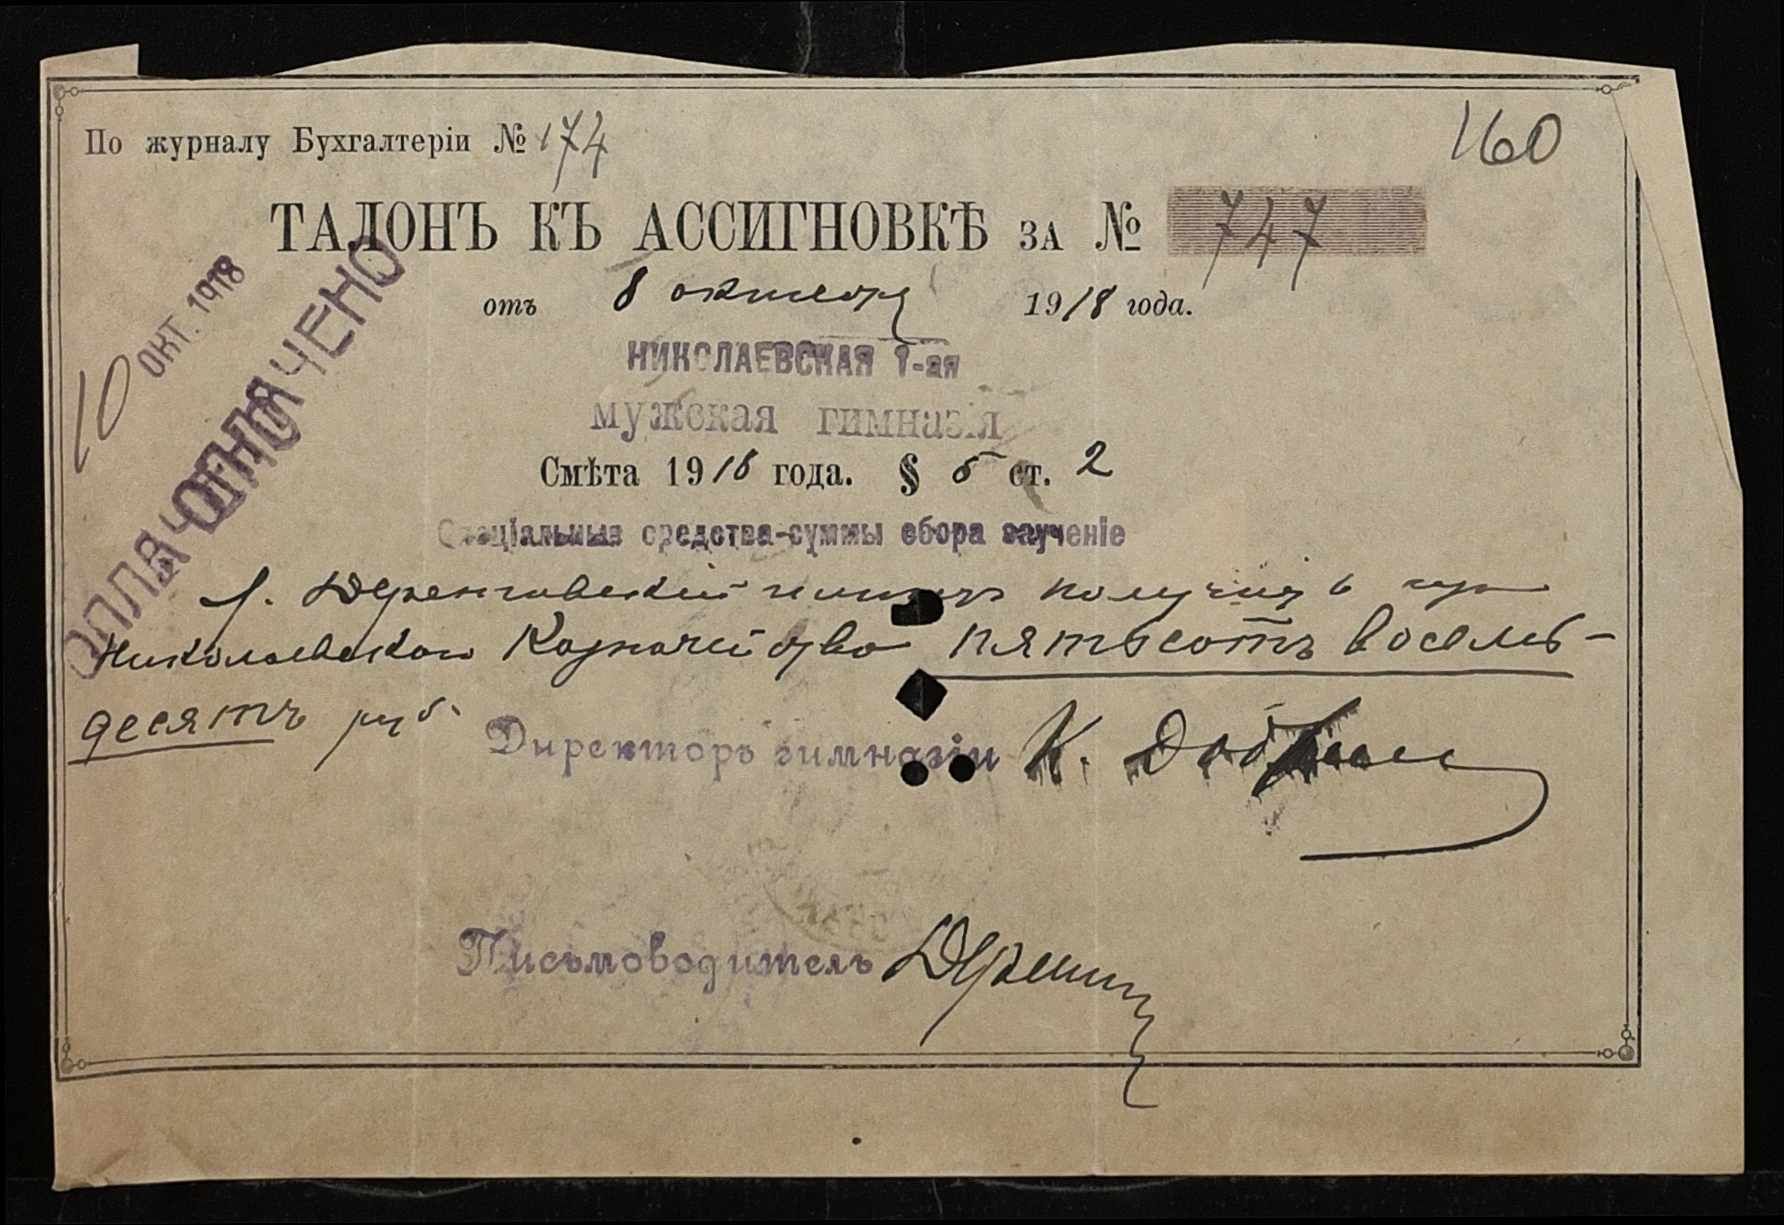 По журналу Бухгалтеріи № 174
160
ТАЛОНЪ КЪ АССИГНОВКѢ ЗА № 747
отъ 8 октября 1918 года.
10 ОКТ. 1918
ОПЛАЧЕНО
ОПЛАЧЕНО
НИКОЛАЕВСКАЯ 1-ая
мужская гимназія
Смѣта 1918 года. § 5 ст. 2
Спеціальныя средства-суммы сбора заученіе
г. получить
Николаевского Казначейства пятьсотъ восемь-
десятъ руб.
Директоръ гимназіи К.
Письмоводитель